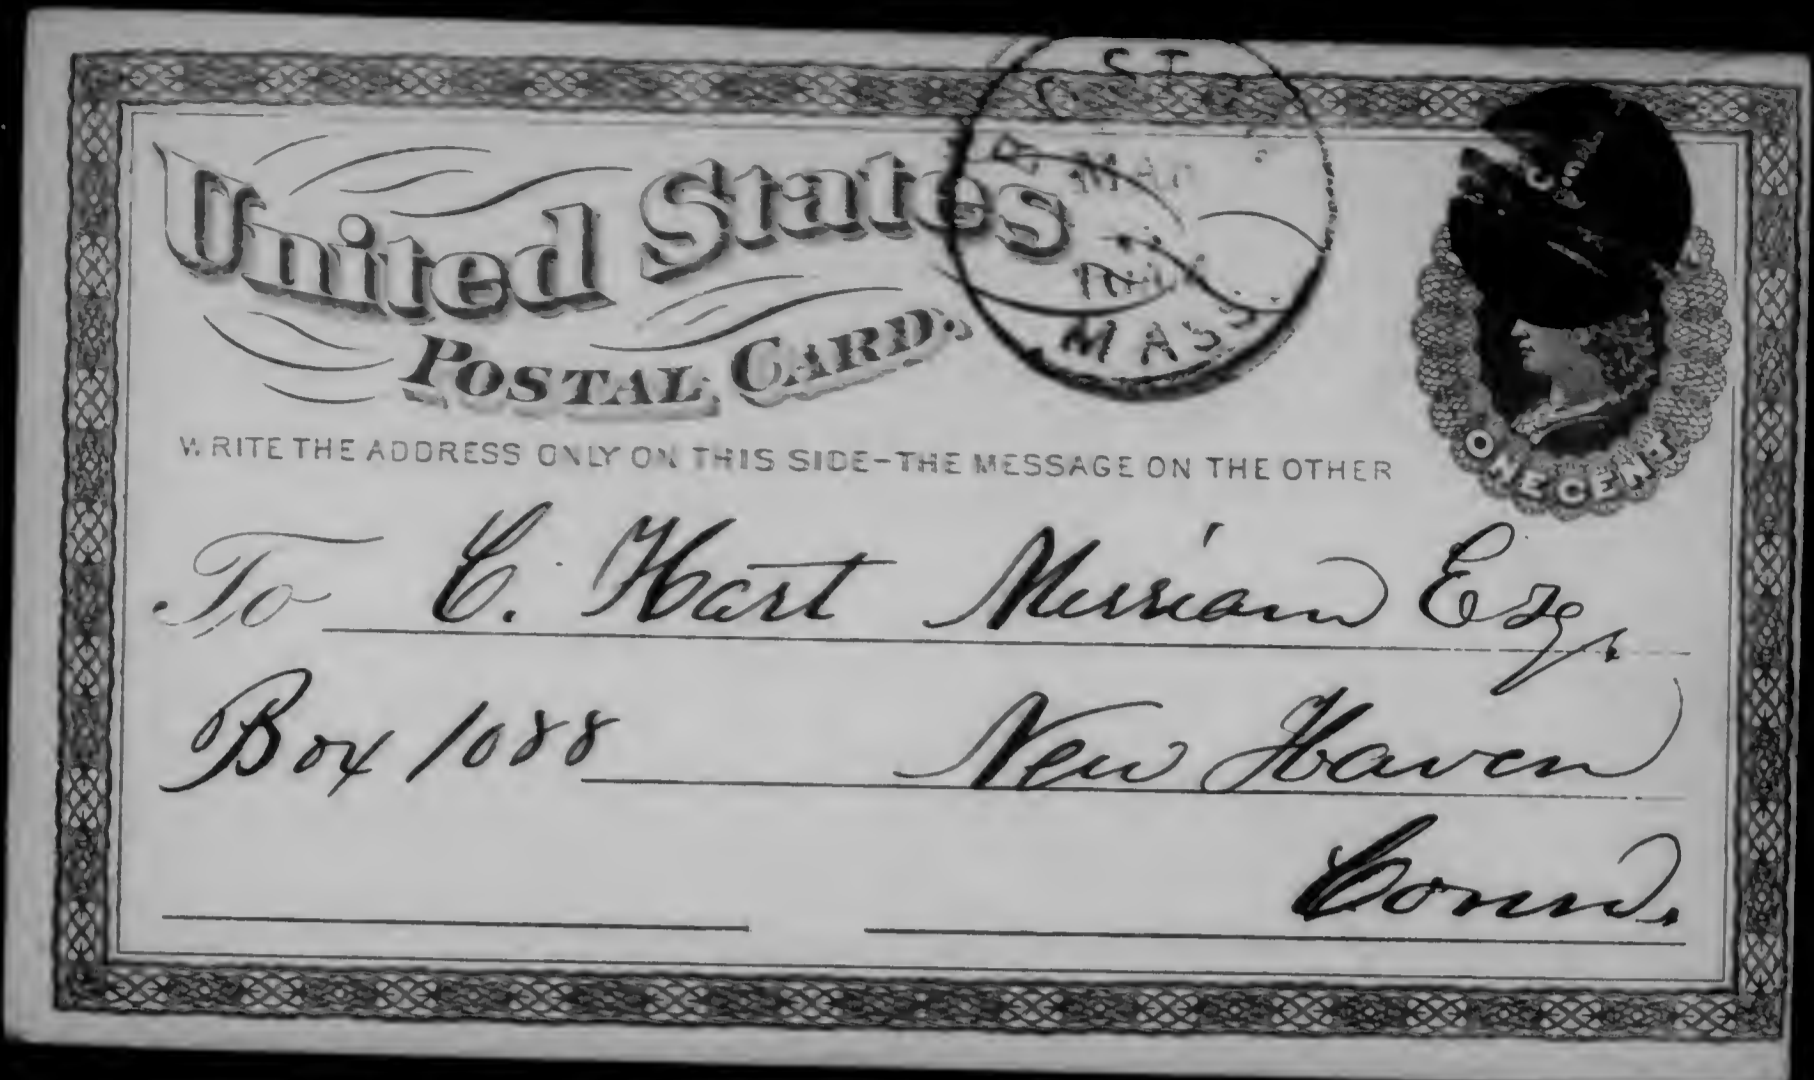 United States
POSTAL CARD.
MAR
MASS
WRITE THE ADDRESS ONLY ON THIS SIDE-THE MESSAGE ON THE OTHER
ONE CENT
To C. Hart Merriam Esq.
Box 1088 New Haven
Conn.